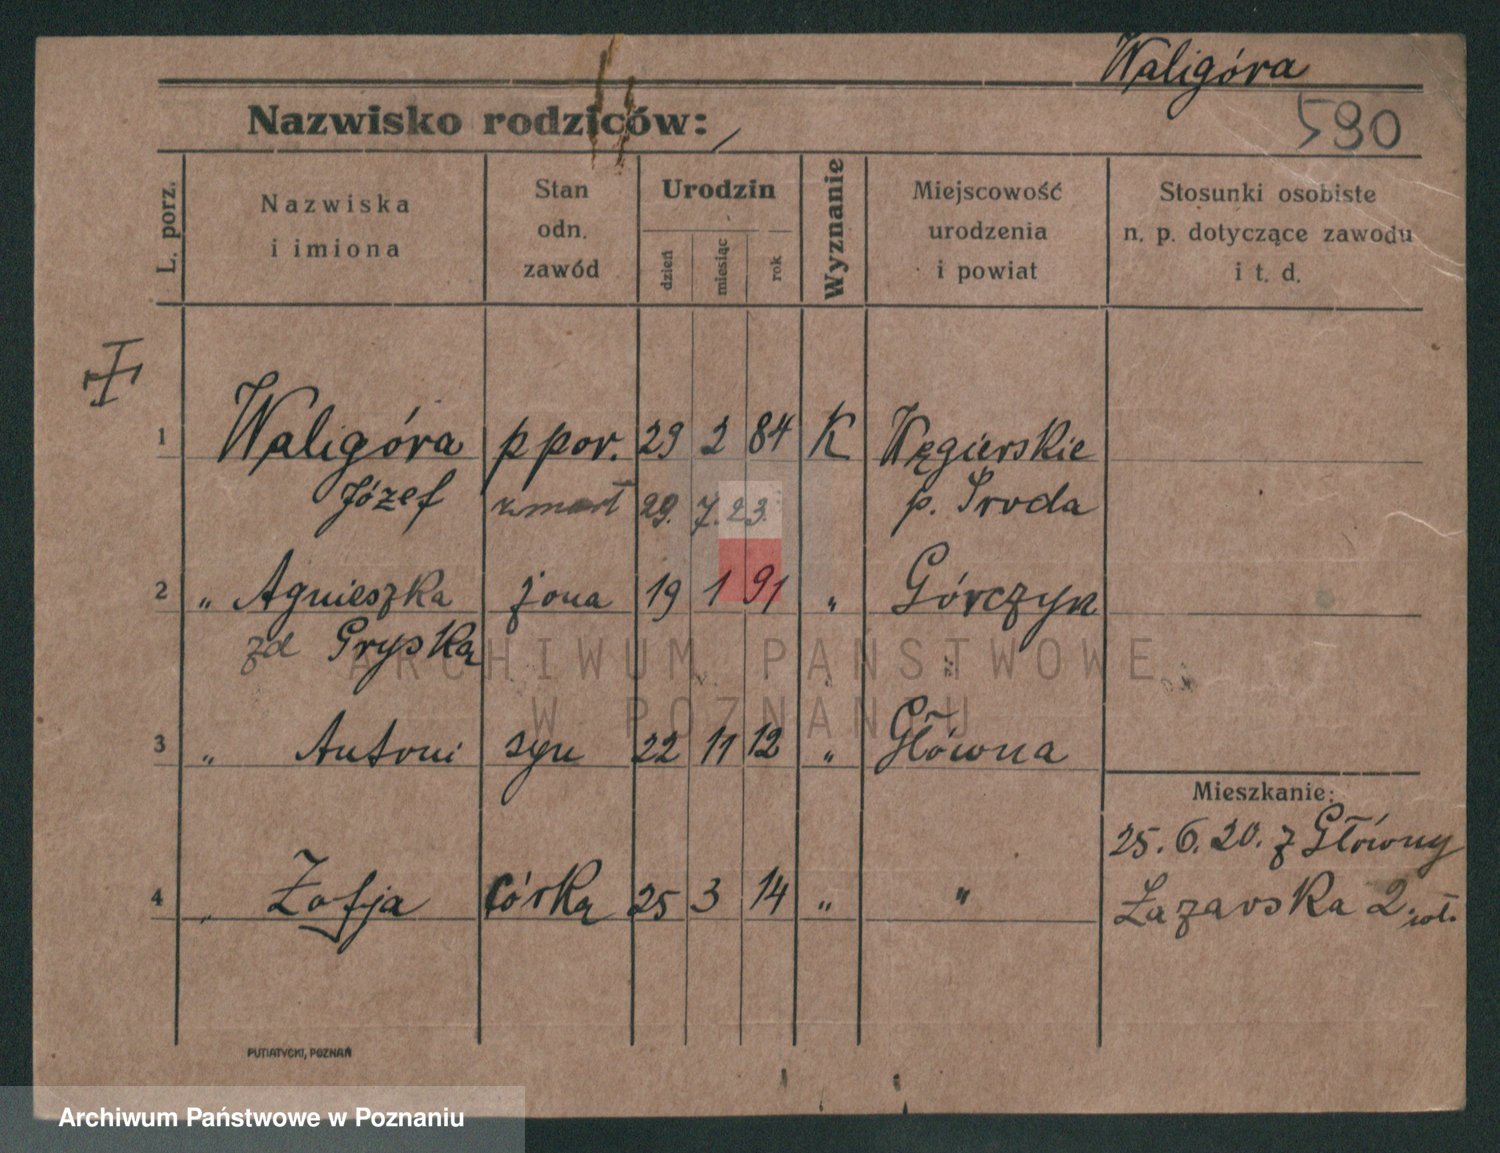 Waligóra
Nazwisko rodziców:
590
L. porz.
Nazwiska
i imiona
Stan
odn.
zawód
Urodzin
dzień
miesiąc
rok
Wyznanie
Miejscowość
urodzenia
i powiat
Stosunki osobiste
n. p. dotyczące zawodu
i t. d.
1 Waligóra ppor. 29 2 84 K Węgierskie
Józef zmarł 29. 7. 23. p. Środa
2 „ Agnieszka żona 19 1 91 „ Górczyn
zd Gryska
3 „ Antoni syn 22 11 12 „ Główna
Mieszkanie:
25. 6. 20. z Główny
4 „ Zofja córka 25 3 14 „ „
Łazarska 2
PUTIATYCKI, POZNAŃ
ARCHIWUM PAŃSTWOWE
W POZNANIU
Archiwum Państwowe w Poznaniu